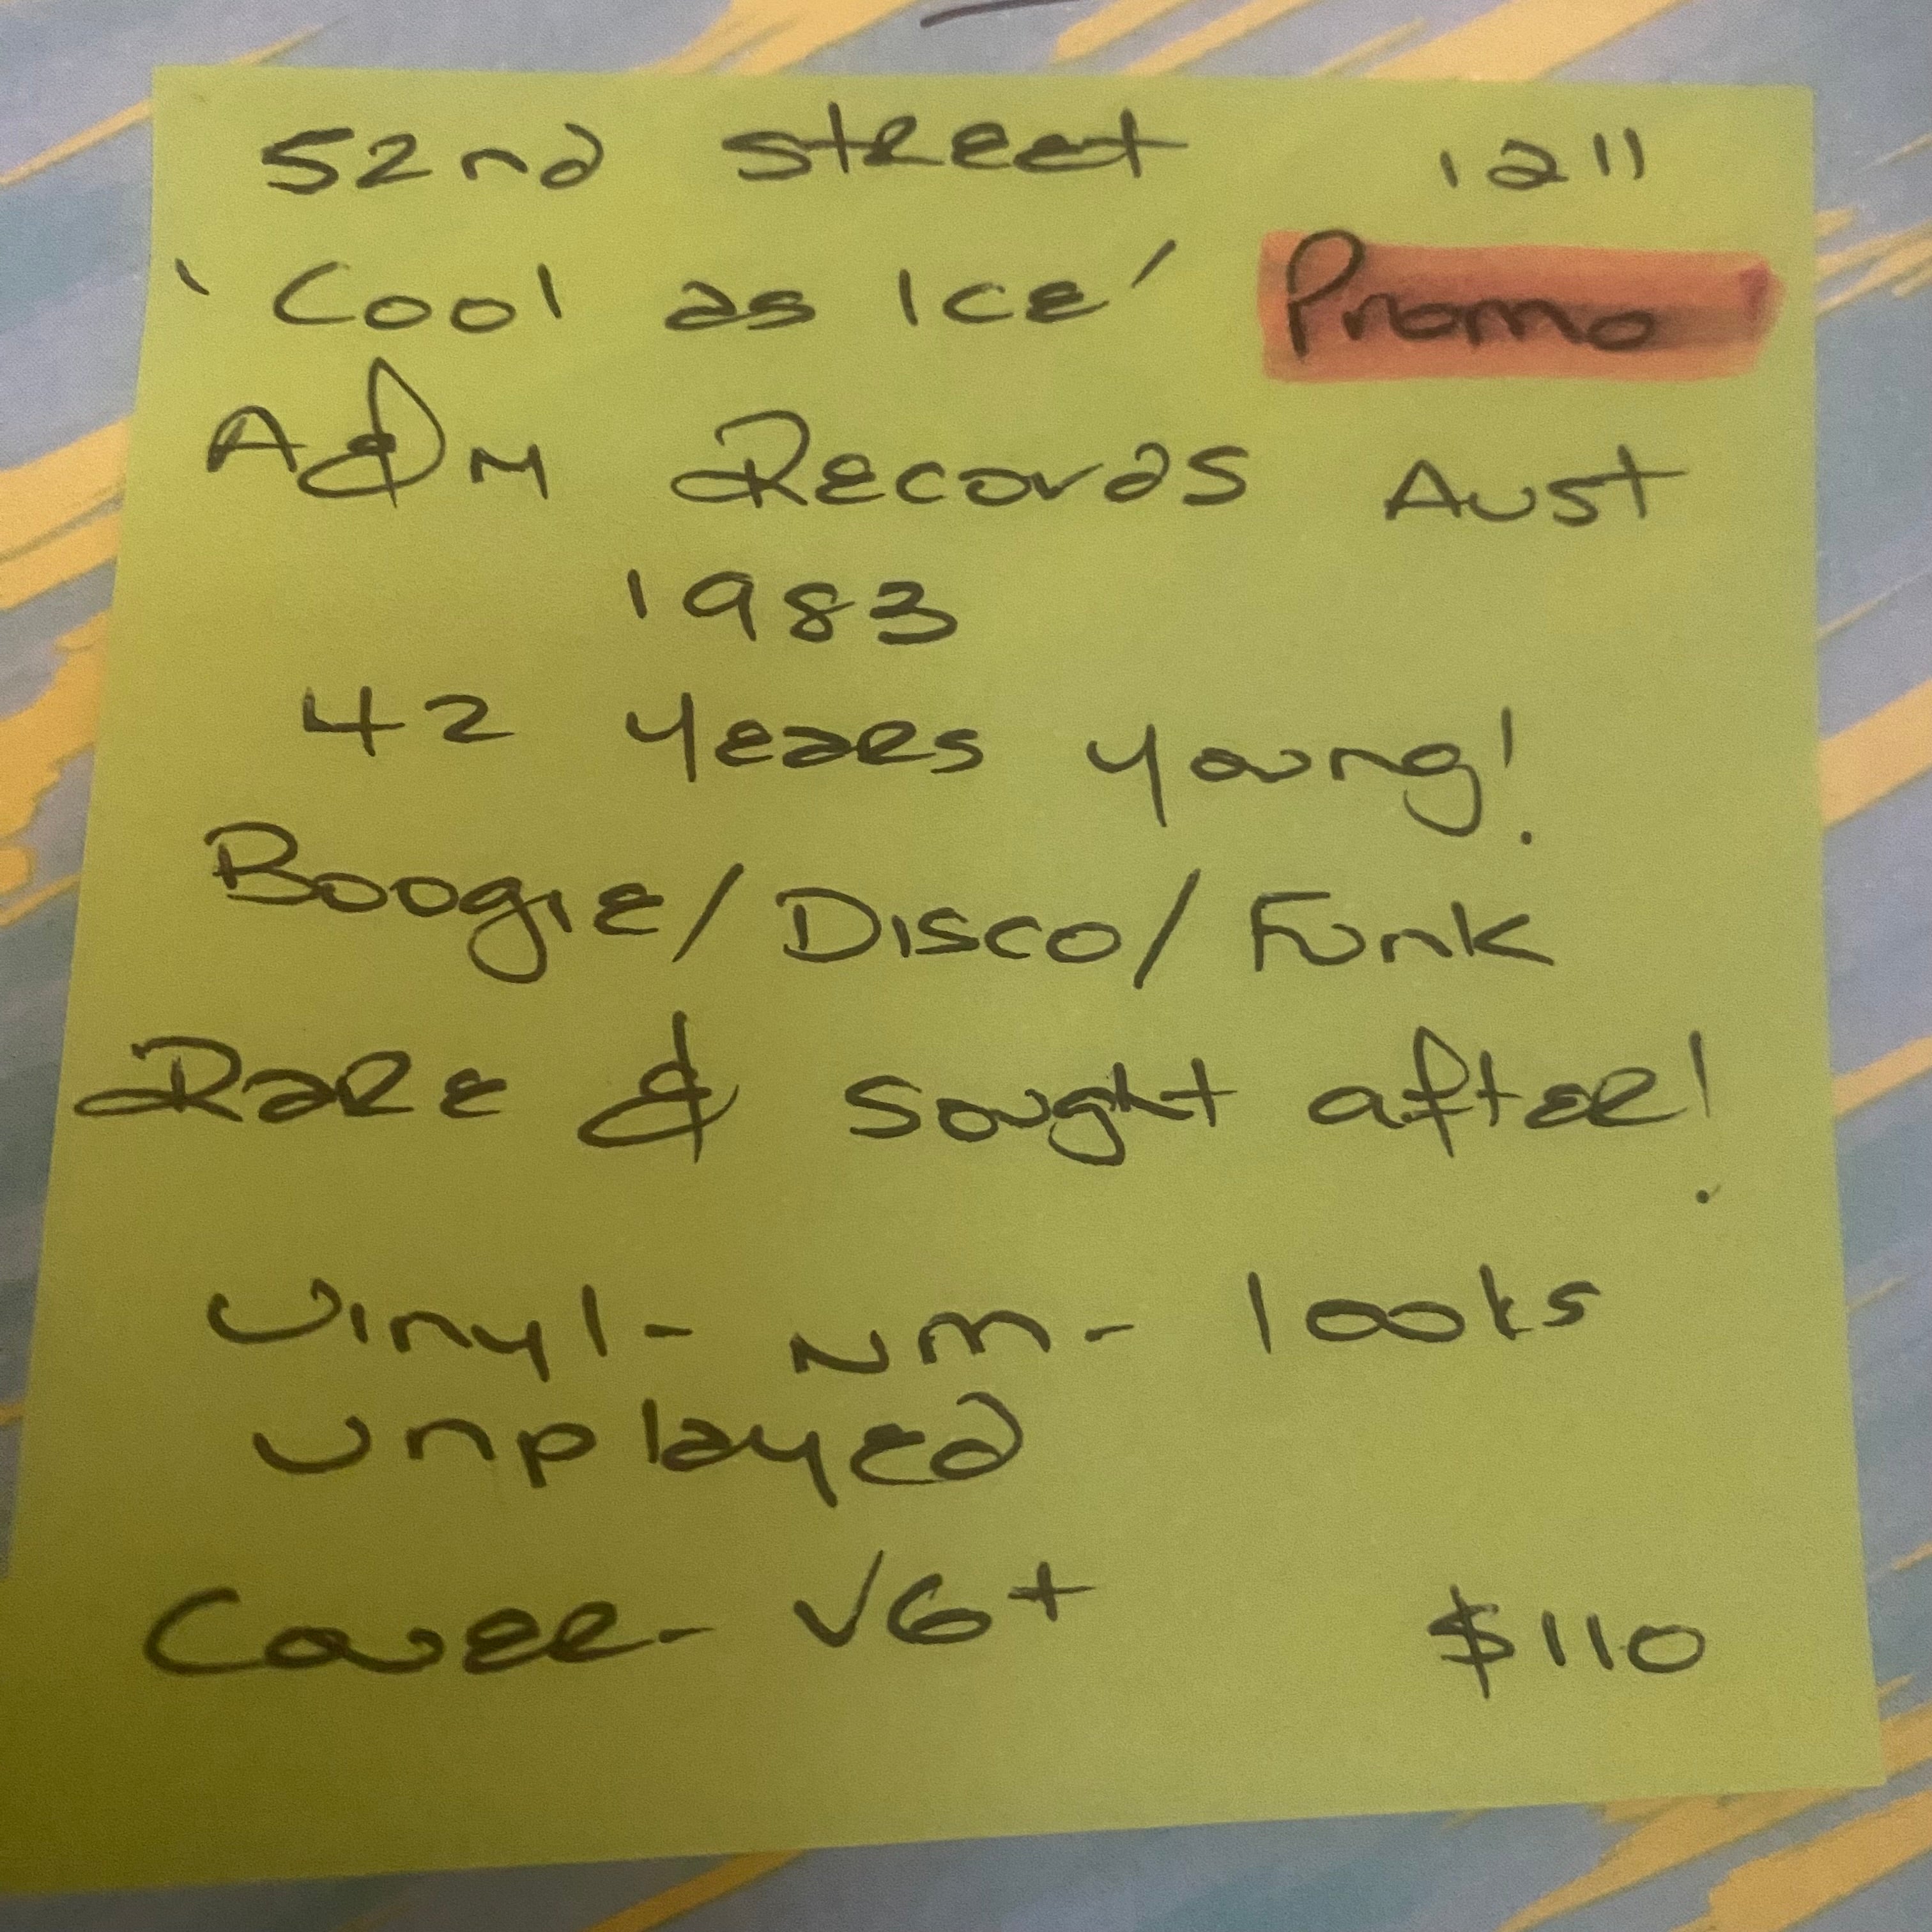 52nd Street 12"
'Cool as Ice' Promo
A&M Records Aust
1983
42 years young!
Boogie/Disco/Funk
Rare & sought after!
Vinyl- NM- looks
unplayed
Cover- VG+ $110